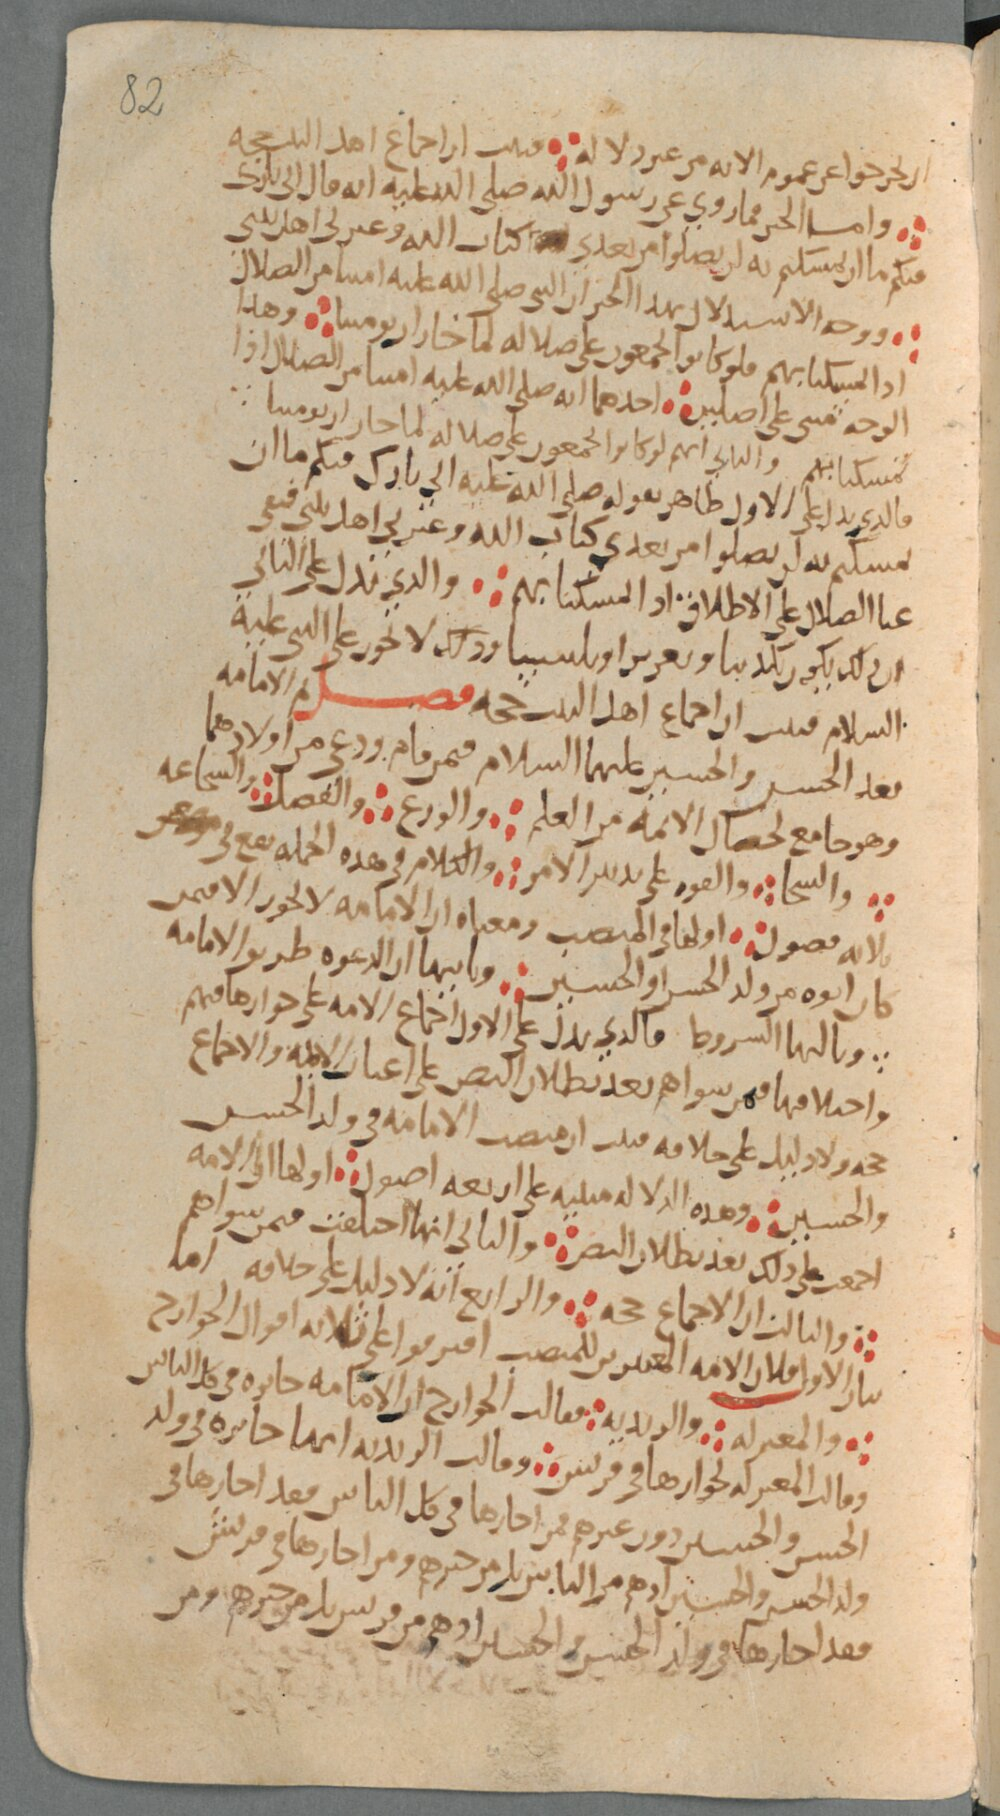 82
ان يخرجوا عن عموم الآية من غير دلالة ⁘ فثبت ان اجماع اهل البيت حجة
⁘ واما الخبر فما روي عن رسول الله صلى الله عليه انه قال اني تارك
فيكم ما ان تمسكتم به لن تضلوا من بعدي كتاب الله وعترتي اهل بيتي
⁘ ووجه الاستدلال بهذا الخبر ان النبي صلى الله عليه امننا من الضلال
اذا تمسكنا بهم فلو كانوا يجمعون على ضلالة لما جاز ان يومننا ⁘ وهذا
الوجه مبني على اصلين ⁘ احدهما انه صلى الله عليه امننا من الضلال اذا
تمسكنا بهم والثاني انهم لو كانوا يجمعون على ضلالة لما جاز ان يومننا ⁘
فالذي يدل على الاول ظاهر بقوله صلى الله عليه اني تارك فيكم ما ان
تمسكتم به لن تضلوا من بعدي كتاب الله وعترتي اهل بيتي فنفى
عنا الضلال على الاطلاق اذا تمسكنا بهم ⁘ والذي يدل على الثاني
ان ذلك يكون كذبا وتغريرا وتلبيسا وذلك لا يجوز على النبي عليه
السلام فثبت ان اجماع اهل البيت حجة فصل في الامامة
بعد الحسن والحسين عليهما السلام فيمن قام ودعى من اولادهما
وهو جامع لخصال الائمة من العلم ⁘ والورع ⁘ والفضل ⁘ والشجاعة
⁘ والسخا ⁘ والقوة على تدبير الامر ⁘ والكلام في هذه الجملة يقع في
ثلاثة فصول ⁘ اولها في المنصب ومعناه ان الامامة لا تجوز الا فيمن
كان ابوه من ولد الحسن او الحسين ⁘ وثانيها ان الدعوة طريق الامامة
⁘ وثالثها الشروط فالذي يدل على الاول اجماع الامة على جوازها فيهم
واختلافها فيمن سواهم بعد بطلان النص على اعيان الائمة والاجماع
حجة ولا دليل على خلافه فثبت ان منصب الامامة في ولد الحسن
والحسين ⁘ وهذه الدلالة مبنية على اربعة اصول ⁘ اولها ان الامة
اجمعت على ذلك بعد بطلان النص ⁘ والثاني انها اختلفت فيمن سواهم
⁘ والثالث ان الاجماع حجة ⁘ والرابع انه لا دليل على خلافه اما
بيان الاول فلان الامة المعتبرين للمنصب افترقوا على ثلاثة اقوال الخوارج
⁘ والمعتزلة ⁘ والزيدية ⁘ فقالت الخوارج ان الامامة جايزة في كل الناس
وقالت المعتزلة بجوازها في قريش ⁘ وقالت الزيدية انها جايزة في ولد
الحسن والحسين دون غيرهم فمن اجازها في كل الناس فقد اجازها في
ولد الحسن والحسين اذ هم من الناس بل من خيرهم ومن اجازها في قريش
فقد اجازها في ولد الحسن والحسين اذ هم من قريش بل من خيرهم ومن